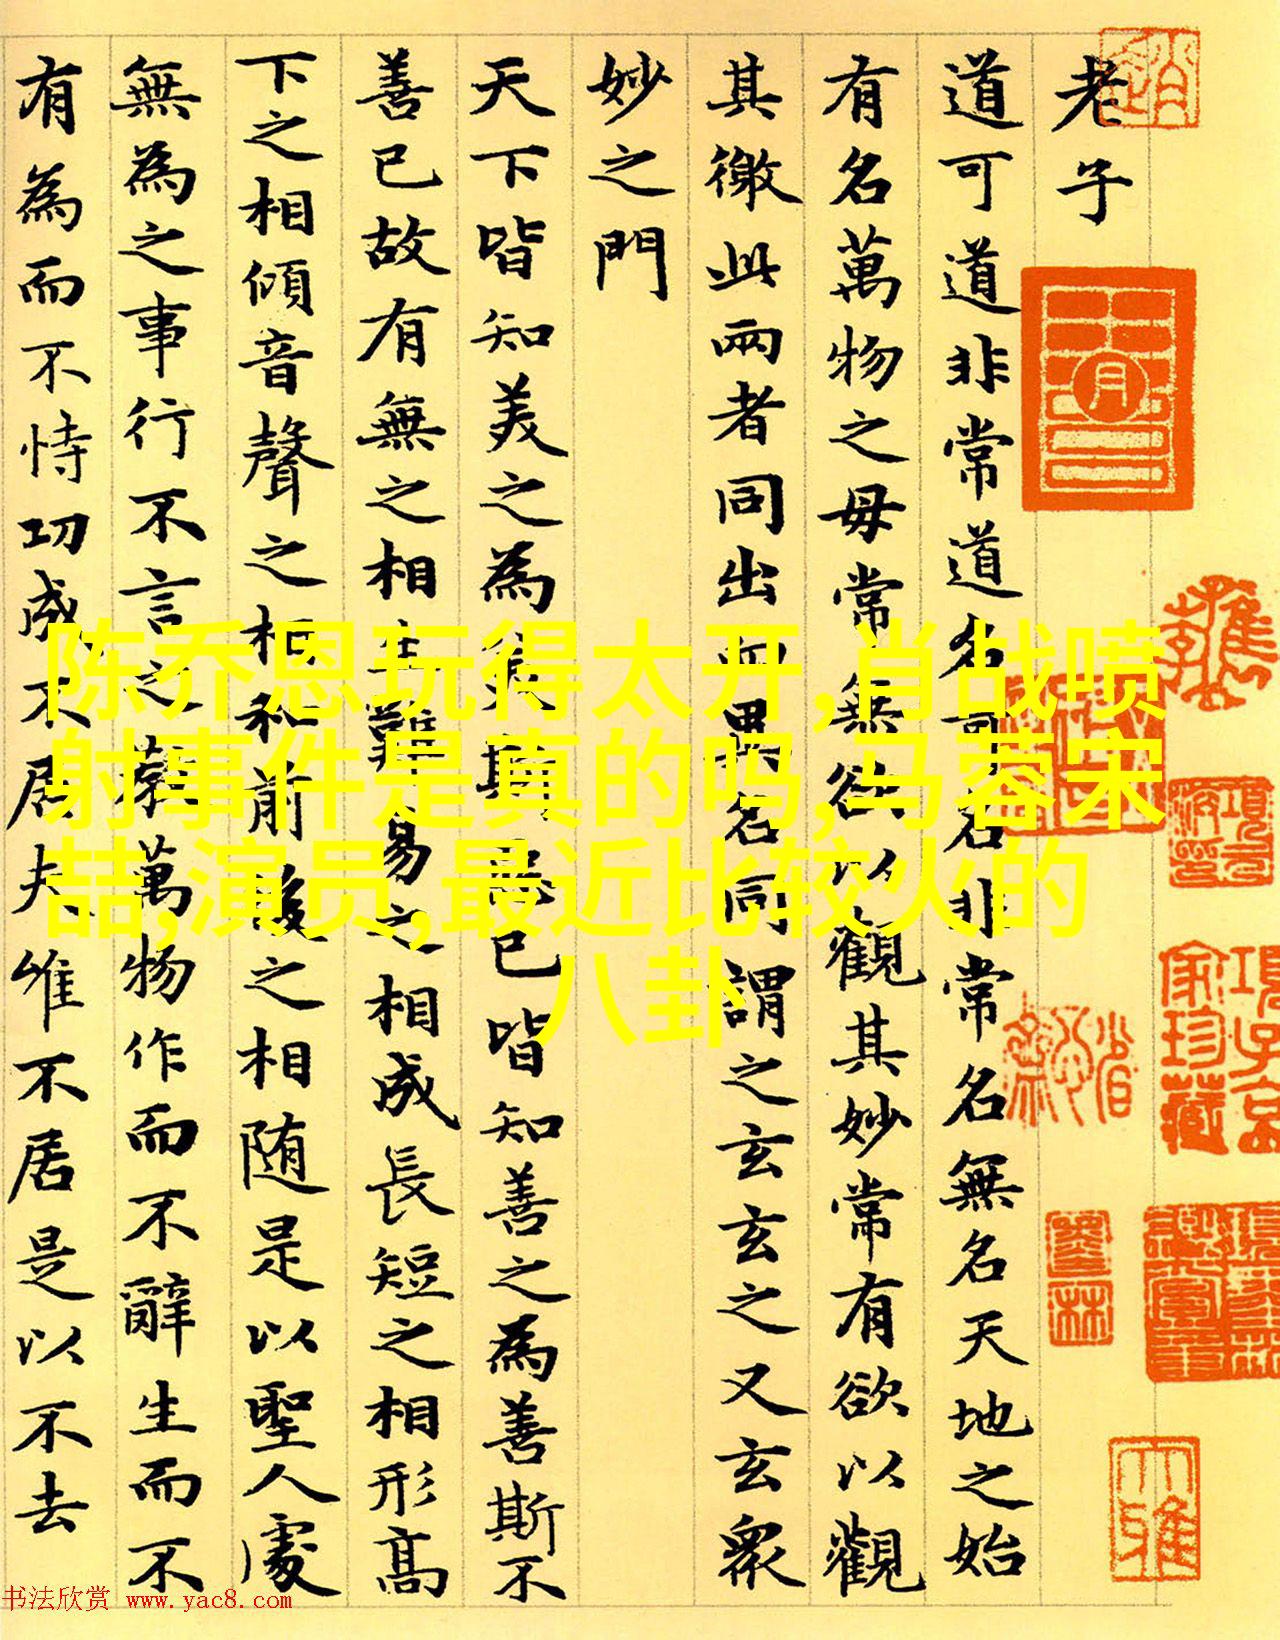 老子
道可道非常道名可名非常名無名天地之始
有名萬物之母常無欲以觀其妙常有欲以觀
其徼此兩者同出而異名同謂之玄玄之又玄衆
妙之門
天下皆知美之為美斯惡已皆知善之為善斯不
善已故有無之相生難易之相成長短之相形高
下之相傾音聲之相和前後之相随是以聖人處
無為之事行不言之教萬物作而不辭生而不
有為而不恃功成不居夫唯不居是以不去
陈乔恩玩得太开,肖战喷
射事件是真的吗,马蓉宋
喆,演员,最近比较火的
八卦
項子京
家珍藏
书法欣赏 www.yac8.com